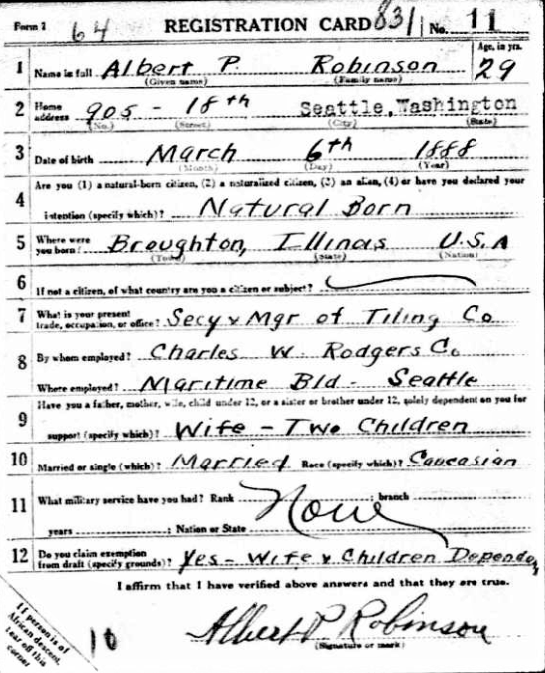 Form 1 64 REGISTRATION CARD 831 No. 11
1 Name in full Albert P. Robinson Age, in yrs. 29
(Given name) (Family name)
2 Home address 905 - 18th Seattle, Washington
(No.) (Street) (City) (State)
3 Date of birth March 6th 1888
(Month) (Day) (Year)
Are you (1) a natural-born citizen, (2) a naturalized citizen, (3) an alien, (4) or have you declared your
4 intention (specify which)? Natural Born
5 Where were you born? Broughton, Illinois U.S.A
(Town) (State) (Nation)
6 If not a citizen, of what country are you a citizen or subject?
7 What is your present trade, occupation, or office? Secy & Mgr of Tiling Co
8 By whom employed? Charles W. Rodgers Co
Where employed? Maritime Bld - Seattle
Have you a father, mother, wife, child under 12, or a sister or brother under 12, solely dependent on you for
9 support (specify which)? Wife - Two Children
10 Married or single (which)? Married Race (specify which)? Caucasian
11 What military service have you had? Rank None ; branch
years ; Nation or State
12 Do you claim exemption from draft (specify grounds)? Yes - Wife & Children Depend
I affirm that I have verified above answers and that they are true.
If person is of
African descent,
tear off this
corner
10
Albert P Robinson
(Signature or mark)